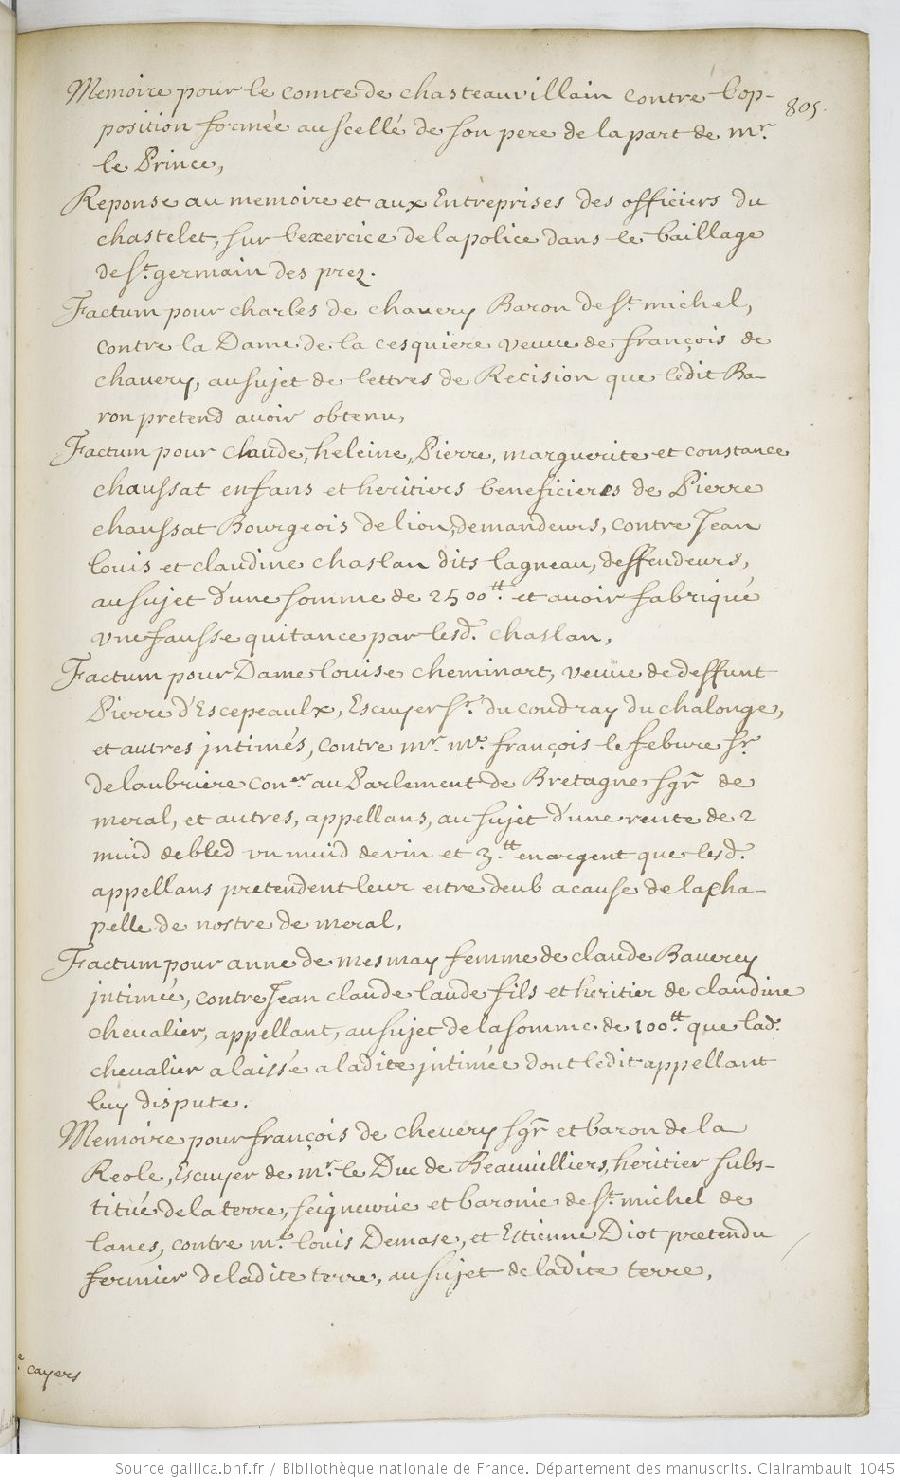 Memoire pour le comte de chasteauvillain contre l'op-
position formée au scellé de son pere de la part de mr.
le Prince,
805.
Reponse au memoire et aux Entreprises des officiers du
chastelet, sur l'exercice de la police dans le baillage
de st. germain des prez.
Factum pour charles de chavery Baron de st. michel,
contre la Dame de la cesquiere veuve de françois de
chavery, au sujet de lettres de Recision que ledit Ba-
ron pretend avoir obtenu,
Factum pour claude, heleine, Pierre, marguerite et constance
chaussat enfans et heritiers beneficieres de Pierre
chaussat Bourgeois de lion, demandeurs, contre Jean
louis et claudine chaslan dits lagneau, deffendeurs,
au sujet d'une somme de 2500tt. et avoir fabriqué
vne fausse quitance par lesd. chaslan,
Factum pour Dame louise cheminart, veuüe de deffunt
Pierre d'Escepeaulx, Escuyer sr. du coudray du chalonge,
et autres jntimés, contre mr. me. françois le febure sr.
de laubriere coner. au Parlement de Bretagne sgr de
meral, et autres, appellans, au sujet d'une rente de 2
muid de bled vn muid de vin et 3.tt en argent que lesd.
appellans pretendent leur estre deub a cause de la cha-
pelle de nostre de meral,
Factum pour anne de mesmay femme de claude Bauerey
jntimée, contre Jean claude laude fils et heritier de claudine
chevalier, appellant, au sujet de la somme de 100tt. que lad.
chevalier a laissé a ladite jntimée dont ledit appellant
luy dispute.
Memoire pour françois de chevery sgr et baron de la
Reole, Escuyer de mr. le Duc de Beauvilliers, heritier subs-
titué de la terre, seigneurie et baronie de st. michel de
lanes, contre me. louis Demase, et Estienne Diot pretendu
fermier de ladite terre, au sujet de ladite terre,
cayers
Source gallica.bnf.fr / Bibliothèque nationale de France. Département des manuscrits. Clairambault 1045